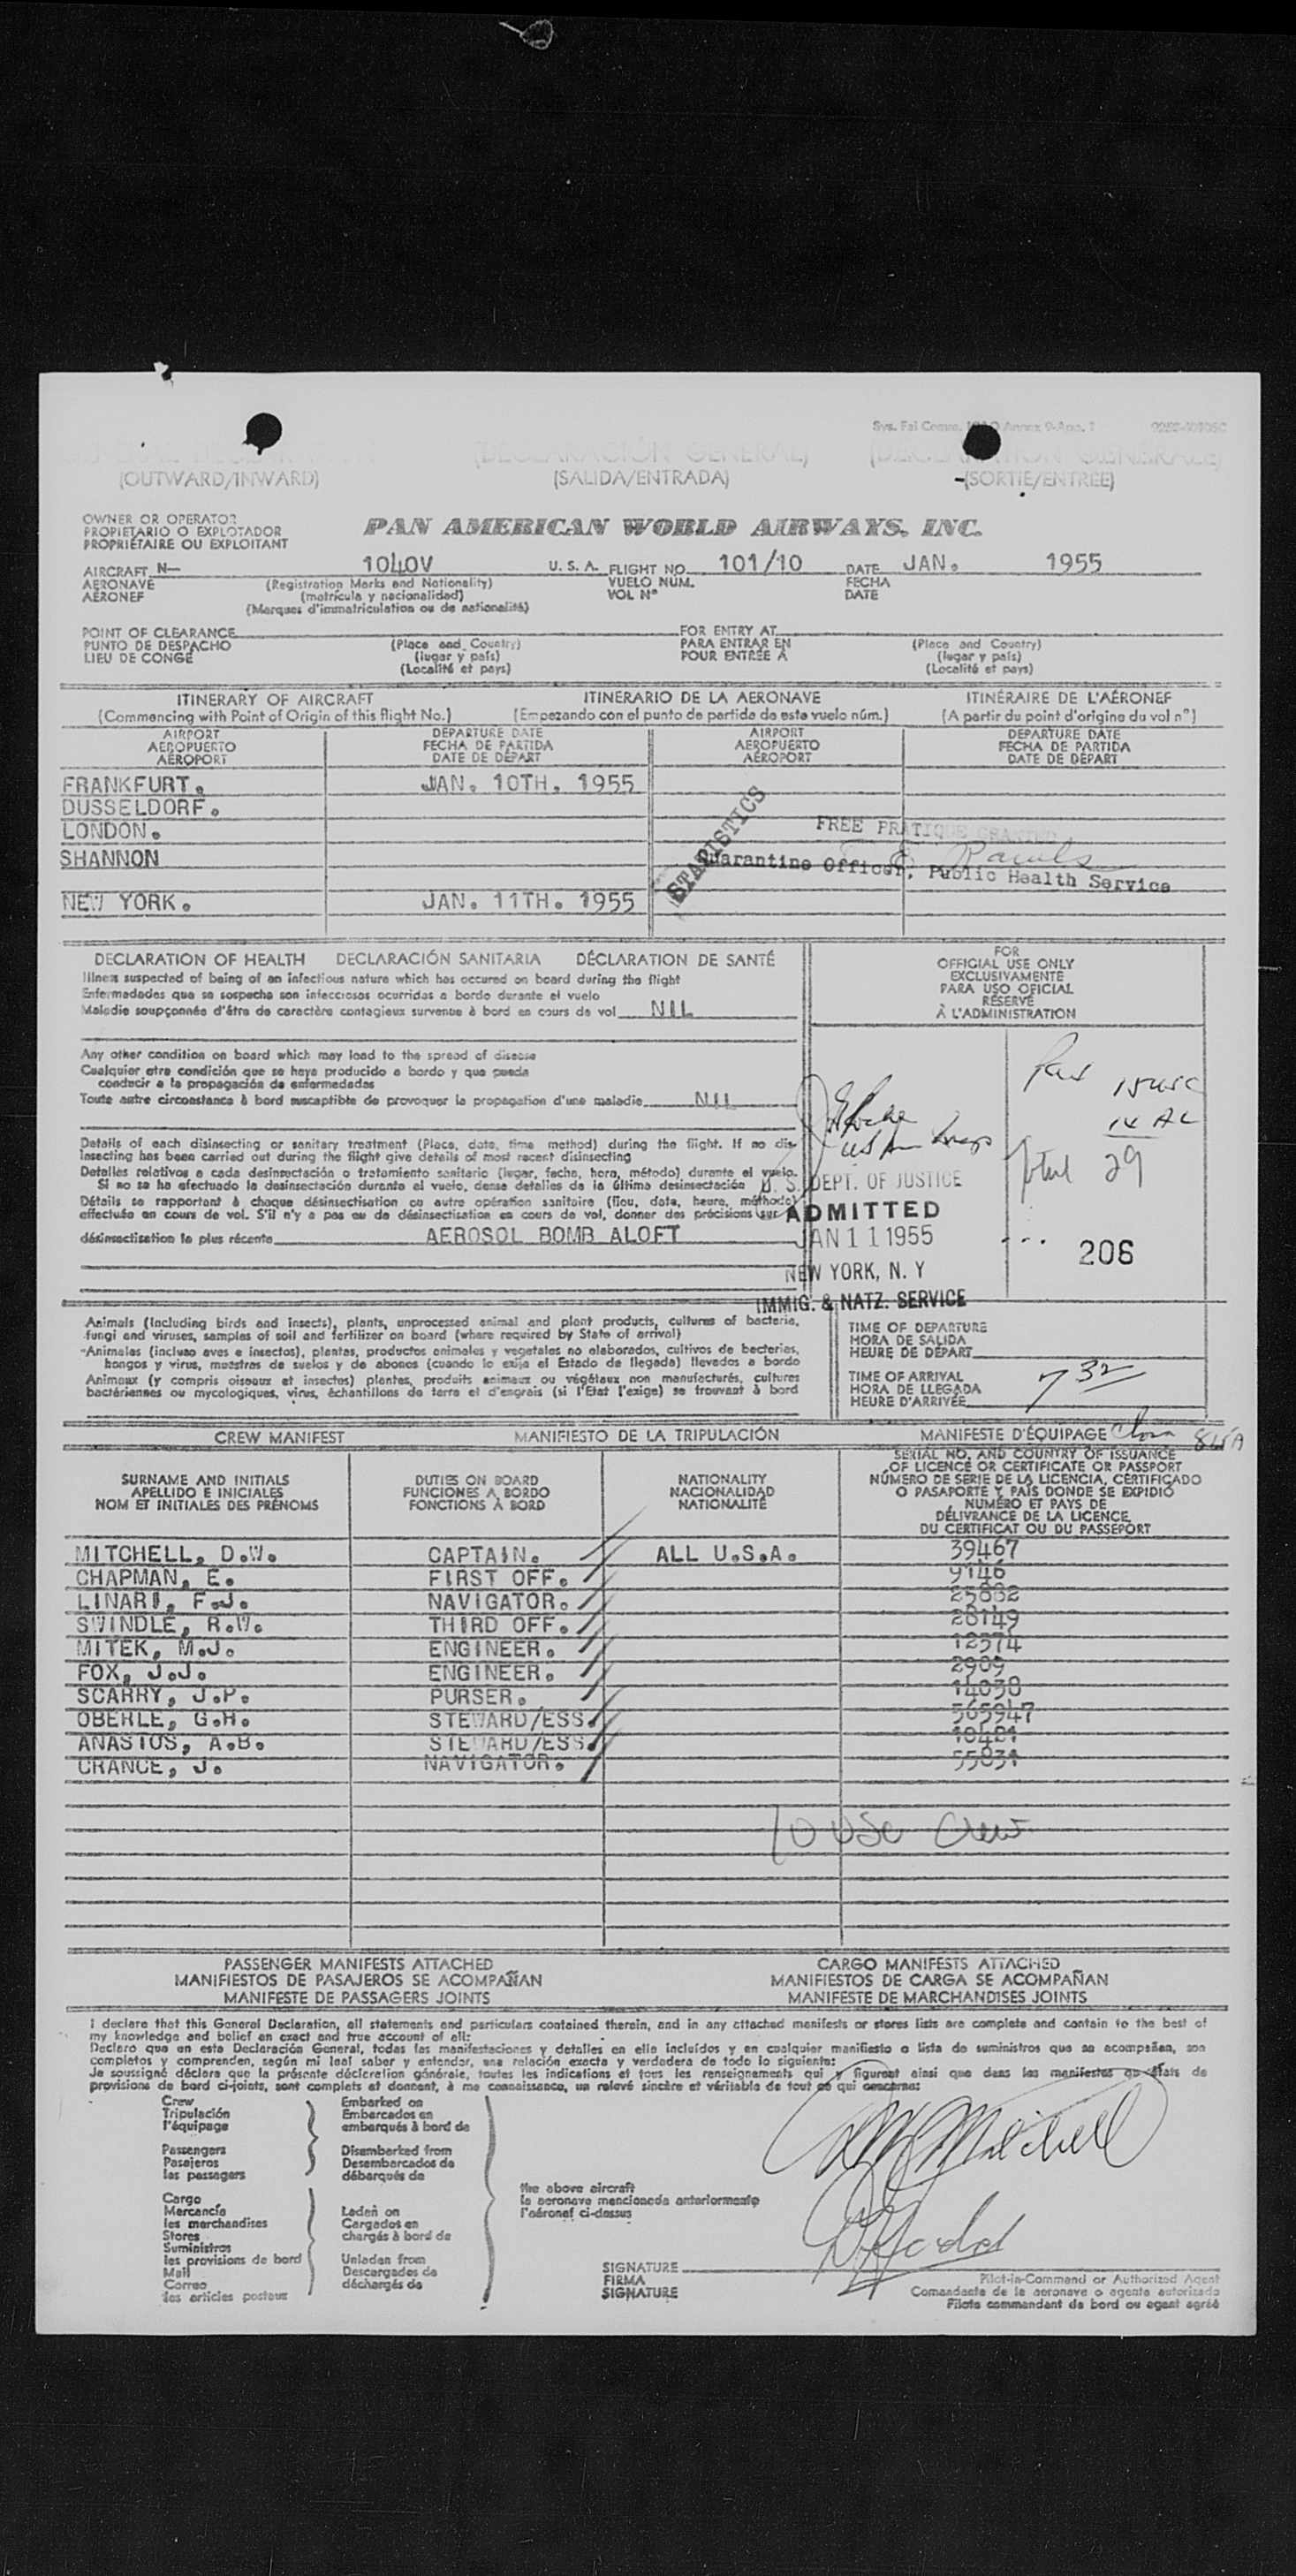 (DECLARACIÓN GENERAL)
(OUTWARD/INWARD) (SALIDA/ENTRADA) (SORTIE/ENTREE)
OWNER OR OPERATOR
PROPIETARIO O EXPLOTADOR
PROPRIÉTAIRE OU EXPLOITANT
PAN AMERICAN WORLD AIRWAYS, INC.
AIRCRAFT N— 1040V U. S. A. FLIGHT NO. 101/10 DATE JAN. 1955
AERONAVE (Registration Marks and Nationality) VUELO NÚM. FECHA
AÉRONEF (matrícula y nacionalidad) VOL Nº DATE
(Marques d'immatriculation ou de nationalité)
POINT OF CLEARANCE FOR ENTRY AT
PUNTO DE DESPACHO (Place and Country) PARA ENTRAR EN (Place and Country)
LIEU DE CONGÉ (lugar y país) POUR ENTRÉE À (lugar y país)
(Localité et pays) (Localité et pays)
ITINERARY OF AIRCRAFT ITINERARIO DE LA AERONAVE ITINÉRAIRE DE L'AÉRONEF
(Commencing with Point of Origin of this flight No.) (Empezando con el punto de partida de este vuelo núm.) (A partir du point d'origine du vol nº)
AIRPORT DEPARTURE DATE AIRPORT DEPARTURE DATE
AEROPUERTO FECHA DE PARTIDA AEROPUERTO FECHA DE PARTIDA
AÉROPORT DATE DE DÉPART AÉROPORT DATE DE DÉPART
FRANKFURT. JAN. 10TH. 1955
DUSSELDORF.
LONDON.
SHANNON
NEW YORK. JAN. 11TH. 1955
STATISTICS
FREE PRATIQUE GRANTED
Quarantine Officer, Public Health Service
DECLARATION OF HEALTH DECLARACIÓN SANITARIA DÉCLARATION DE SANTÉ
Illness suspected of being of an infectious nature which has occured on board during the flight
Enfermedades que se sospecha son infecciosas ocurridas a bordo durante el vuelo
Maladie soupçonnée d'être de caractère contagieux survenue à bord en cours de vol NIL
Any other condition on board which may lead to the spread of disease
Cualquier otra condición que se haya producido a bordo y que pueda
conducir a la propagación de enfermedades
Toute autre circonstance à bord susceptible de provoquer la propagation d'une maladie NIL
Details of each disinsecting or sanitary treatment (Place, date, time method) during the flight. If no dis-
insecting has been carried out during the flight give details of most recent disinsecting
Detalles relativos a cada desinsectación o tratamiento sanitario (lugar, fecha, hora, método) durante el vuelo.
Si no se ha efectuado la desinsectación durante el vuelo, dense detalles de la última desinsectación
Détails se rapportant à chaque désinsectisation ou autre opération sanitaire (lieu, date, heure, méthode)
effectuée en cours de vol. S'il n'y a pas eu de désinsectisation en cours de vol, donner des précisions sur
désinsectisation la plus récente AEROSOL BOMB ALOFT
FOR
OFFICIAL USE ONLY
EXCLUSIVAMENTE
PARA USO OFICIAL
RÉSERVÉ
À L'ADMINISTRATION
Total 29
U. S. DEPT. OF JUSTICE
ADMITTED
JAN 11 1955
NEW YORK, N. Y
IMMIG. & NATZ. SERVICE
206
Animals (Including birds and insects), plants, unprocessed animal and plant products, cultures of bacteria,
fungi and viruses, samples of soil and fertilizer on board (where required by State of arrival)
Animales (incluso aves e insectos), plantas, productos animales y vegetales no elaborados, cultivos de bacterias,
hongos y virus, muestras de suelos y de abonos (cuando lo exija el Estado de llegada) llevados a bordo
Animaux (y compris oiseaux et insectes) plantes, produits animaux ou végétaux non manufacturés, cultures
bactériennes ou mycologiques, virus, échantillons de terre et d'engrais (si l'Etat l'exige) se trouvant à bord
TIME OF DEPARTURE
HORA DE SALIDA
HEURE DE DÉPART
TIME OF ARRIVAL
HORA DE LLEGADA
HEURE D'ARRIVÉE 7 32
CREW MANIFEST MANIFIESTO DE LA TRIPULACIÓN MANIFESTE D'ÉQUIPAGE
SURNAME AND INITIALS
APELLIDO E INICIALES
NOM ET INITIALES DES PRÉNOMS
DUTIES ON BOARD
FUNCIONES A BORDO
FONCTIONS À BORD
NATIONALITY
NACIONALIDAD
NATIONALITÉ
SERIAL NO. AND COUNTRY OF ISSUANCE
OF LICENCE OR CERTIFICATE OR PASSPORT
NÚMERO DE SERIE DE LA LICENCIA, CERTIFICADO
O PASAPORTE Y PAÍS DONDE SE EXPIDIÓ
NUMÉRO ET PAYS DE
DÉLIVRANCE DE LA LICENCE,
DU CERTIFICAT OU DU PASSEPORT
MITCHELL, D.W. CAPTAIN. ALL U.S.A. 39467
CHAPMAN, E. FIRST OFF. 9146
LINARI, F.J. NAVIGATOR. 25882
SWINDLE, R.W. THIRD OFF. 28149
MITEK, M.J. ENGINEER. 12574
FOX, J.J. ENGINEER. 2909
SCARRY, J.P. PURSER. 14038
OBERLE, G.H. STEWARD/ESS. 565947
ANASTOS, A.B. STEWARD/ESS. 10481
CRANCE, J. NAVIGATOR. 55831
10 USC Crew
PASSENGER MANIFESTS ATTACHED CARGO MANIFESTS ATTACHED
MANIFIESTOS DE PASAJEROS SE ACOMPAÑAN MANIFIESTOS DE CARGA SE ACOMPAÑAN
MANIFESTE DE PASSAGERS JOINTS MANIFESTE DE MARCHANDISES JOINTS
I declare that this General Declaration, all statements and particulars contained therein, and in any attached manifests or stores lists are complete and contain to the best of
my knowledge and belief an exact and true account of all:
Declaro que en esta Declaración General, todas las manifestaciones y detalles en ella incluídos y en cualquier manifiesto o lista de suministros que se acompañan, son
completos y comprenden, según mi leal saber y entender, una relación exacta y verdadera de todo lo siguiente:
Je soussigné déclare que la présente déclaration générale, toutes les indications et tous les renseignements qui y figurent ainsi que dans les manifestes ou états de
provisions de bord ci-joints, sont complets et donnent, à ma connaissance, un relevé sincère et véritable de tout ce qui concerne:
Crew Embarked on
Tripulación Embarcados en
l'équipage embarqués à bord de
Passengers Disembarked from
Pasajeros Desembarcados de
les passagers débarqués de
Cargo
Mercancía Laden on
les merchandises Cargados en
Stores chargés à bord de
Suministros
les provisions de bord Unladen from
Mail Descargados de
Correo déchargés de
les articles postaux
the above aircraft
la aeronave mencionada anteriormente
l'aéronef ci-dessus
SIGNATURE
FIRMA
SIGNATURE
Pilot-in-Command or Authorized Agent
Comandante de la aeronave o agente autorizado
Pilote commandant de bord ou agent agréé